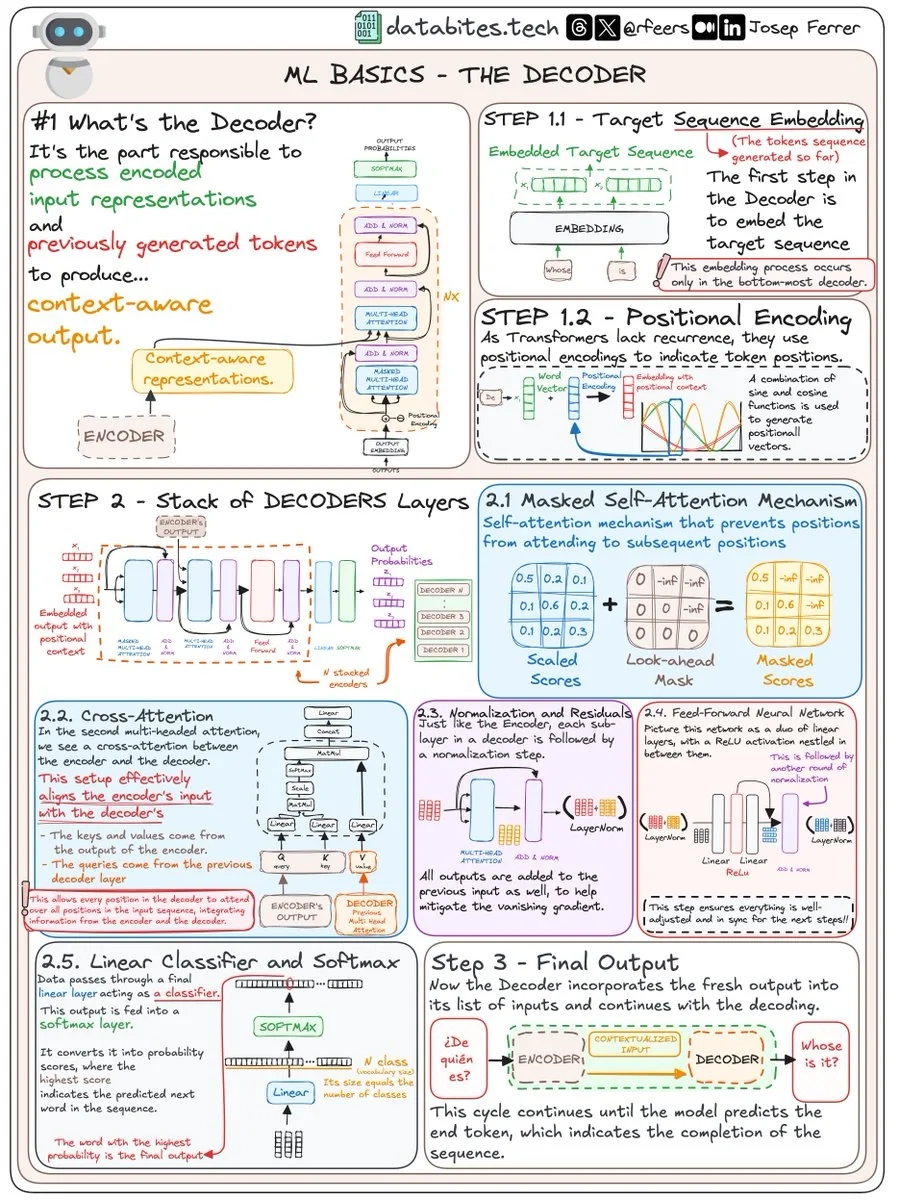 011
0101
001
databites.tech @rfeers in Josep Ferrer
ML BASICS - THE DECODER
#1 What's the Decoder?
It's the part responsible to
process encoded
input representations
and
previously generated tokens
to produce...
context-aware
output.
OUTPUT
PROBABILITIES
SOFTMAX
LINEAR
ADD & NORM
Feed Forward
ADD & NORM
MULTI-HEAD
ATTENTION
ADD & NORM
MASKED
MULTI-HEAD
ATTENTION
NX
Positional
Encoding
OUTPUT
EMBEDDING
OUTPUTS
Context-aware
representations.
ENCODER
STEP 1.1 - Target Sequence Embedding
(The tokens sequence
generated so far)
Embedded Target Sequence
EMBEDDING
Whose
is
The first step in
the Decoder is
to embed the
target sequence
This embedding process occurs
only in the bottom-most decoder.
STEP 1.2 - Positional Encoding
As Transformers lack recurrence, they use
positional encodings to indicate token positions.
De
Word
Vector
+
Positional
Encoding
Embedding with
positional context
A combination of
sine and cosine
functions is used
to generate
positionall
vectors.
STEP 2 - Stack of DECODERS Layers
ENCODER's
OUTPUT
Embedded
output with
positional
context
MASKED
MULTI-HEAD
ATTENTION
ADD
&
NORM
MULTI-HEAD
ATTENTION
ADD
&
NORM
Feed
Forward
ADD
&
NORM
LINEAR
SOFTMAX
Output
Probabilities
DECODER N
DECODER 3
DECODER 2
DECODER 1
N stacked
encoders
2.1 Masked Self-Attention Mechanism
Self-attention mechanism that prevents positions
from attending to subsequent positions
0.5 0.2 0.1
0.1 0.6 0.2
0.1 0.2 0.3
Scaled
Scores
+
0 -inf -inf
0 0 -inf
0 0 0
Look-ahead
Mask
=
0.5 -inf -inf
0.1 0.6 -inf
0.1 0.2 0.3
Masked
Scores
2.2. Cross-Attention
In the second multi-headed attention,
we see a cross-attention between
the encoder and the decoder.
This setup effectively
aligns the encoder's input
with the decoder's
- The keys and values come from
the output of the encoder.
- The queries come from the previous
decoder layer
This allows every position in the decoder to attend
over all positions in the input sequence, integrating
information from the encoder and the decoder.
Linear
Concat
MatMul
SoftMax
Scale
MatMul
Linear
Linear
Linear
Q
query
K
key
V
value
ENCODER's
OUTPUT
DECODER
Previous
Multi Head
Attention
2.3. Normalization and Residuals
Just like the Encoder, each sub-
layer in a decoder is followed by
a normalization step.
MULTI-HEAD
ATTENTION
ADD & NORM
LayerNorm
All outputs are added to the
previous input as well, to help
mitigate the vanishing gradient.
2.4. Feed-Forward Neural Network
Picture this network as a duo of linear
layers, with a ReLU activation nestled in
between them.
This is followed by
another round of
normalization
LayerNorm
Linear
ReLu
Linear
ADD & NORM
LayerNorm
This step ensures everything is well-
adjusted and in sync for the next steps!!
2.5. Linear Classifier and Softmax
Data passes through a final
linear layer acting as a classifier.
This output is fed into a
softmax layer.
It converts it into probability
scores, where the
highest score
indicates the predicted next
word in the sequence.
The word with the highest
probability is the final output
SOFTMAX
N class
(vocabulary size)
Its size equals the
number of classes
Linear
Step 3 - Final Output
Now the Decoder incorporates the fresh output into
its list of inputs and continues with the decoding.
¿De
quién
es?
ENCODER
CONTEXTUALIZED
INPUT
DECODER
Whose
is it?
This cycle continues until the model predicts the
end token, which indicates the completion of the
sequence.